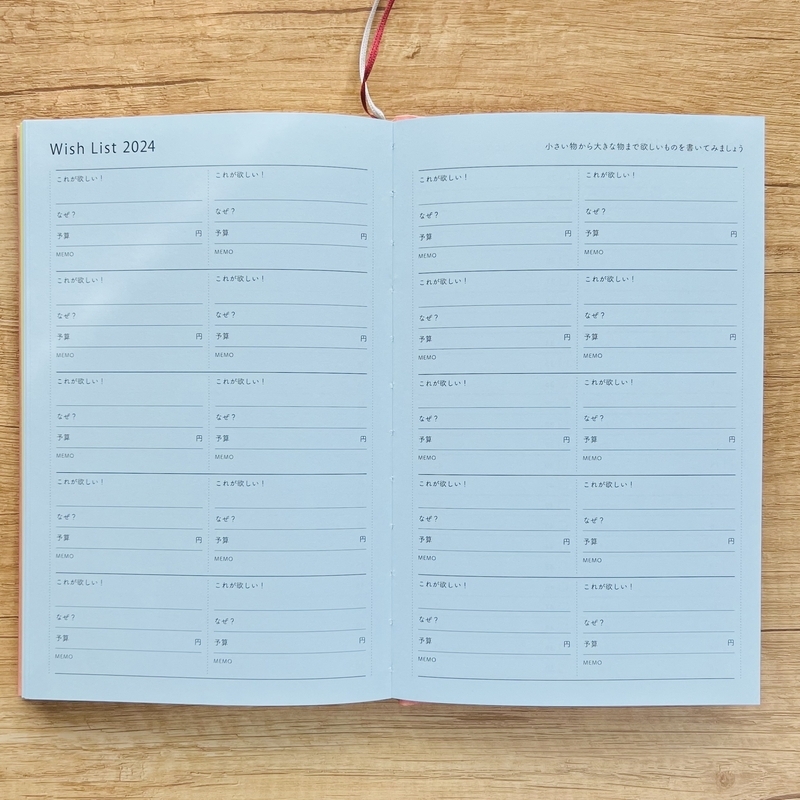 Wish List 2024
小さい物から大きな物まで欲しいものを書いてみましょう
これが欲しい！ これが欲しい！ これが欲しい！ これが欲しい！
なぜ？ なぜ？ なぜ？ なぜ？
予算 円 予算 円 予算 円 予算 円
MEMO MEMO MEMO MEMO
これが欲しい！ これが欲しい！ これが欲しい！ これが欲しい！
なぜ？ なぜ？ なぜ？ なぜ？
予算 円 予算 円 予算 円 予算 円
MEMO MEMO MEMO MEMO
これが欲しい！ これが欲しい！ これが欲しい！ これが欲しい！
なぜ？ なぜ？ なぜ？ なぜ？
予算 円 予算 円 予算 円 予算 円
MEMO MEMO MEMO MEMO
これが欲しい！ これが欲しい！ これが欲しい！ これが欲しい！
なぜ？ なぜ？ なぜ？ なぜ？
予算 円 予算 円 予算 円 予算 円
MEMO MEMO MEMO MEMO
これが欲しい！ これが欲しい！ これが欲しい！ これが欲しい！
なぜ？ なぜ？ なぜ？ なぜ？
予算 円 予算 円 予算 円 予算 円
MEMO MEMO MEMO MEMO